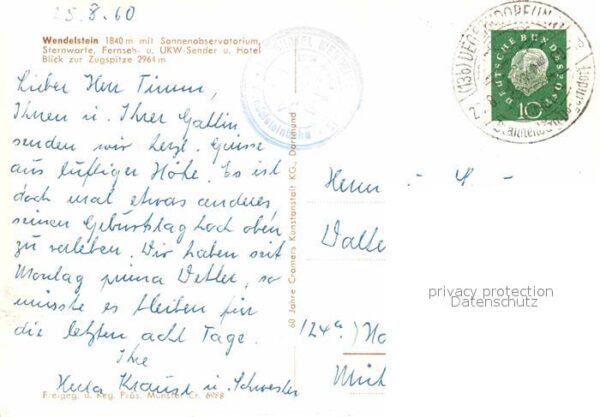 25.8.60
Wendelstein 1840 m mit Sonnenobservatorium,
Sternwarte, Fernseh- u. UKW-Sender u. Hotel
Blick zur Zugspitze 2964 m
Lieber Herr Timm,
Ihnen u. Ihrer Gattin
senden wir herzl. Grüsse
aus luftiger Höhe. Es ist
doch mal etwas anderes,
seinen Geburtstag hoch oben
zu verleben. Wir haben seit
Montag prima Wetter, so
müsste es bleiben für
die letzten acht Tage.
Ihre
Herta Krause u. Schwester
Freigeg. d. Reg. Präs. Münster Cr. 6998
60 Jahre Cramers Kunstanstalt KG. Dortmund
DEUTSCHE BUNDESPOST
10
(13b)
Herrn
Walte
(24a) Ha
privacy protection
Datenschutz